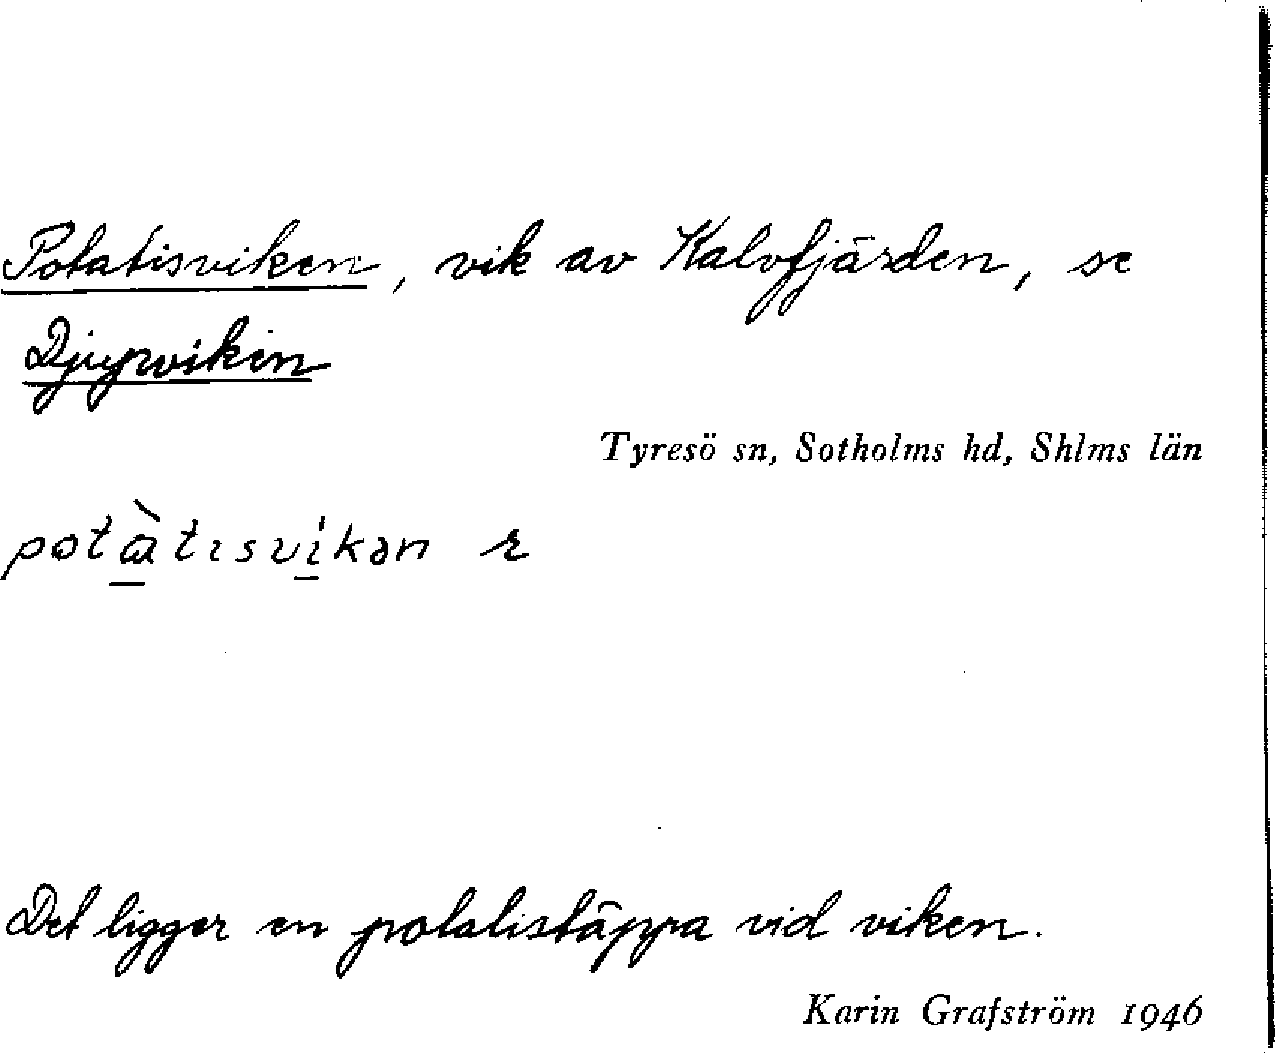 Potatisviken, vik av Kalvfjärden, se
Djupviken
Tyresö sn, Sotholms hd, Shlms län
potɑ̀tɪsvi̍kən r
Det ligger en potatistäppa vid viken.
Karin Grafström 1946